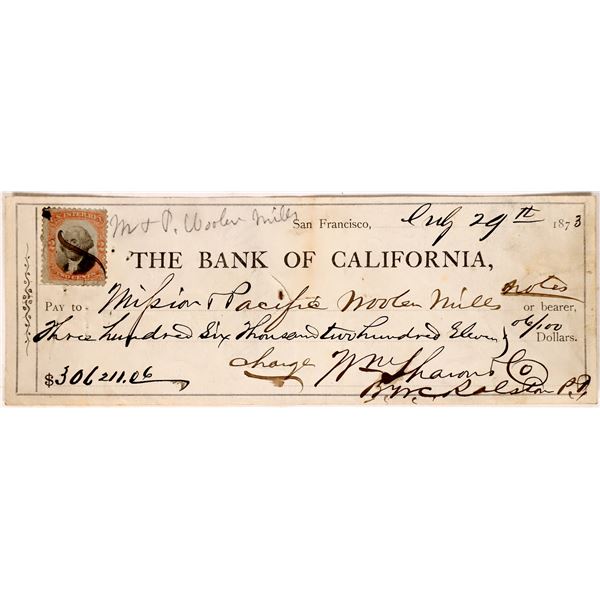 U.S. INTER. REV.
M & P. Woolen Mills
San Francisco, July 29th 1873
THE BANK OF CALIFORNIA,
Pay to Mission & Pacific Woolen Mills notes or bearer,
Three hundred Six Thousand two hundred Eleven 06/100 Dollars.
charge Wm Sharon & Co
$306211.06
By W.C. Ralston